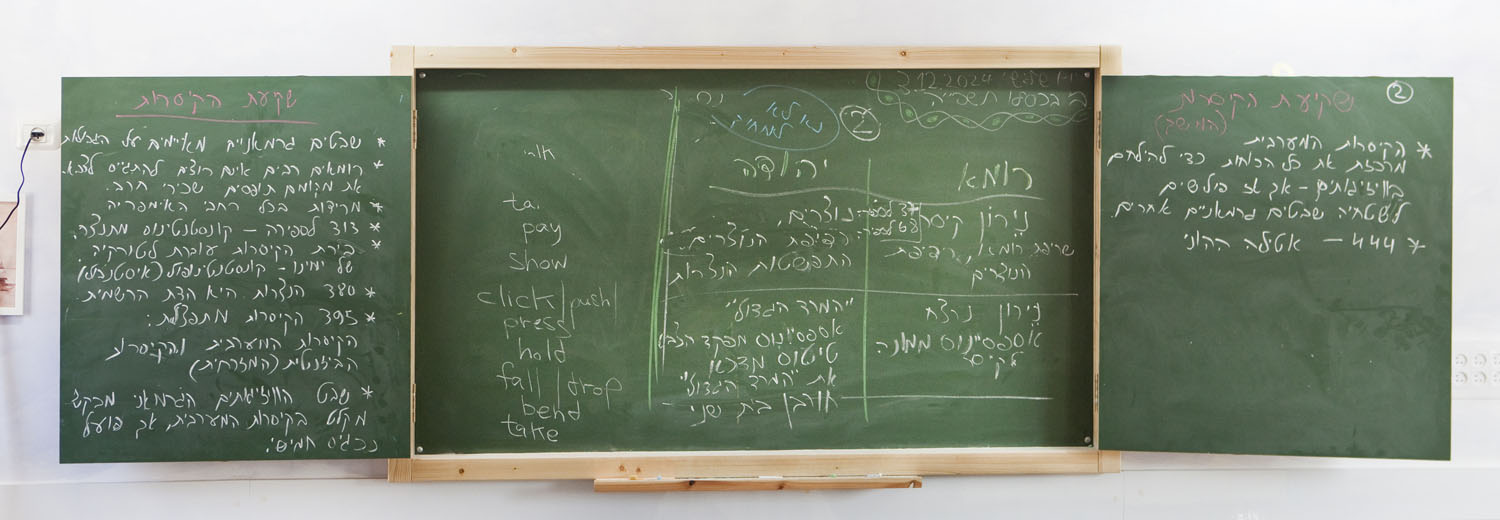 שקעת הקיסרות
* שבטים גרמאניים מאיימים על הגבולות
* רומאים רבים אינם רוצים להתגייס לצבא.
את מקומם תופסים שכירי חרב.
* מרידות בכל רחבי האימפריה
* 313 לספירה - קונסטנטינוס מתנצר,
* בירת הקיסרות עוברת לטורקיה
של ימינו - קונסטנטינופול (איסטנבול)
* 380 הנצרות היא הדת הרשמית.
* 395 הקיסרות מתפצלת:
הקיסרות המערבית והקיסרות
הביזנטית (המזרחית)
* שבט הוויזיגאתים הגרמאני מבקש
מקלט בקיסרות המערבית, אך פועל
כגיס חמישי.
יום שלישי 3.12.2024
ב' בכסלו תשפ"ה
2
נא לא
למחוק
יהודה
רומא
נירון קיסר
שריפת רומא, רדיפת
הנוצרים
37 לספי'
68 לספי'
נוצרים,
רדיפת הנוצרים
התפשטות הנצרות
נירון נרצח
אספסיינוס ממונה
לקיסר
"המרד הגדול"
אספסיינוס מפקד הצבא
טיטוס מדכא
את "המרד הגדול"
חורבן בית שני
pay
show
click/push/
press
hold
fall/drop
bend
take
2
שקיעת הקיסרות
(המשך)
* הקיסרות המערבית
מרכזת את כל הכוחות כדי להילחם
בוויזיגאתים - אך אז פולשים
לשטחיה שבטים גרמאניים אחרים.
* 444 - אטילה ההוני